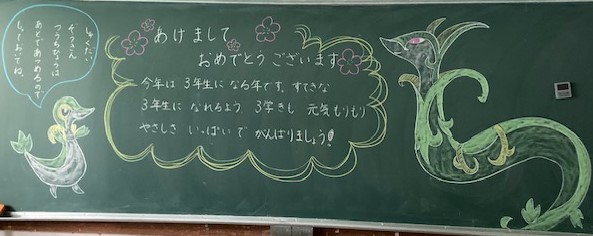 あけまして
おめでとうございます
今年は 3年生に なる年です。すてきな
3年生に なれるよう 3学きも 元気もりもり
やさしさ いっぱいで がんばりましょう!
しゅくだい
ぞうきん
つうちひょうは
あとであつめるので
しっておいてね。